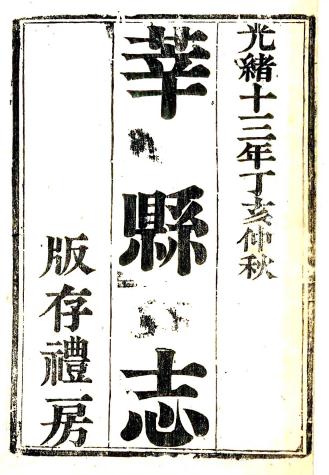 光緒十三年丁亥仲秋
莘縣志
版存禮房